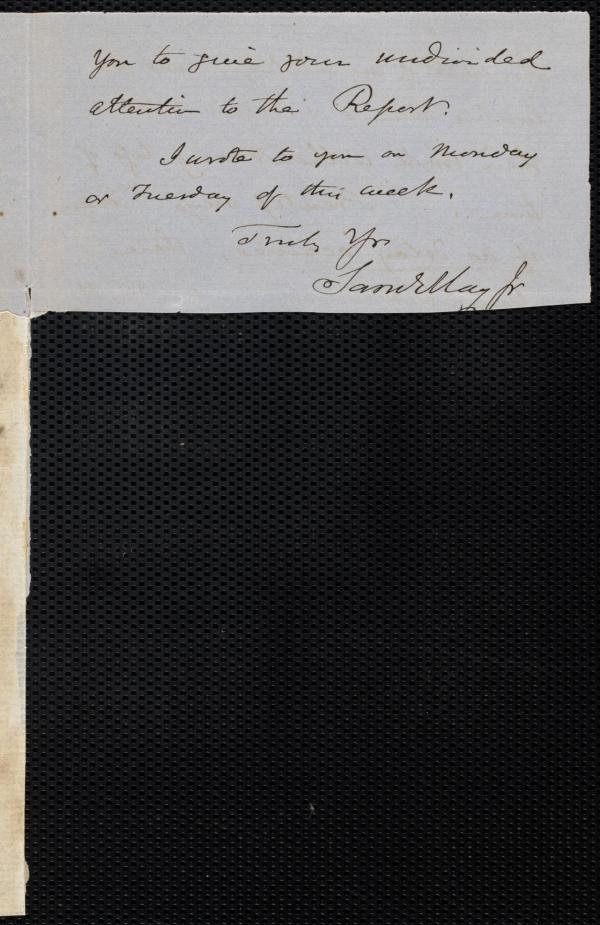 you to give your undivided
attention to the Report.
I wrote to you on Monday
or Tuesday of this week.
Truly Yrs
Saml May Jr